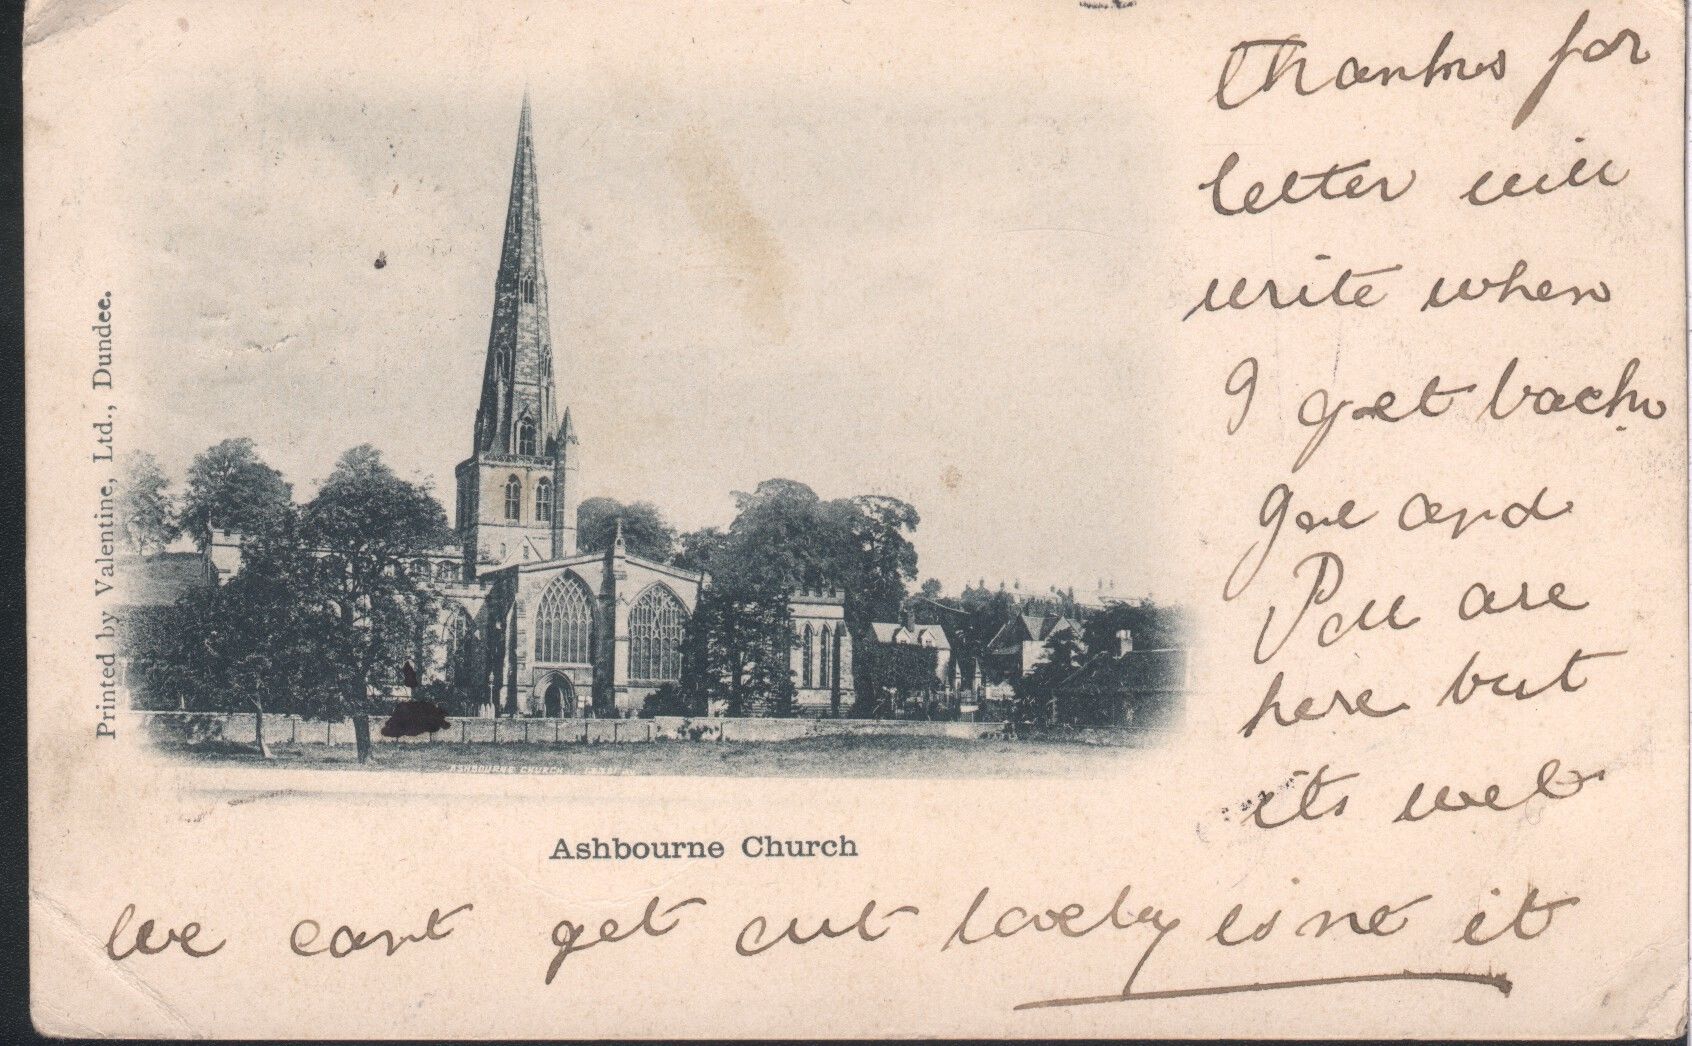 Printed by Valentine, Ltd., Dundee.
Thanks for
letter will
write when
I get back
and
are
here but
its wet
ASHBOURNE CHURCH
Ashbourne Church
We cant get out lovely isnt it